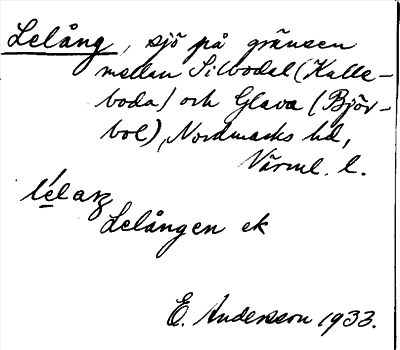 Lelång, sjö på gränsen
mellan Silbodal (Kalle-
boda) och Glava (Björ-
bol), Nordmarks hd,
Värml. l.
Lelången ek
E. Andersson 1933.